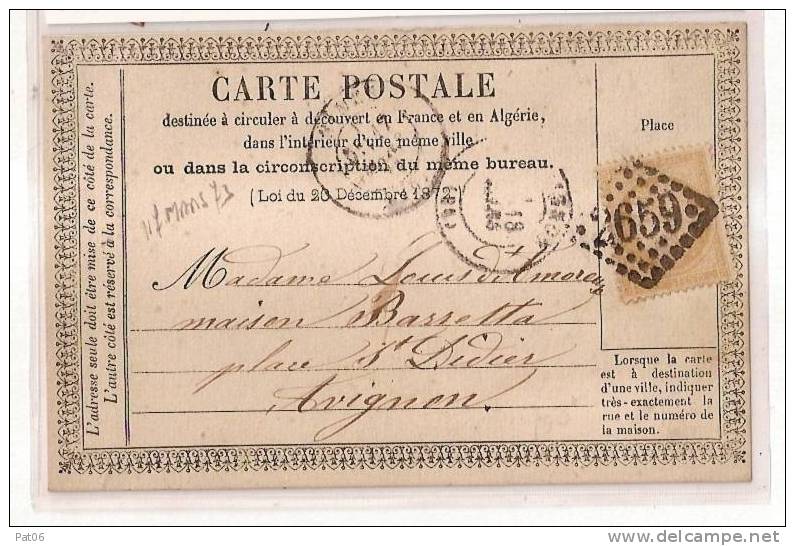 CARTE POSTALE
destinée à circuler à découvert en France et en Algérie,
dans l'intérieur d'une même ville
ou dans la circonscription du même bureau.
(Loi du 20 Décembre 1872)
L'adresse seule doit être mise de ce côté de la carte.
L'autre côté est réservé à la correspondance.
17 MARS 73
Place
659
18
Madame Louis d'Amoreux
maison Barretta
place St Didier
Avignon.
Lorsque la carte
est à destination
d'une ville, indiquer
très-exactement la
rue et le numéro de
la maison.
Pat06
delcampe.net